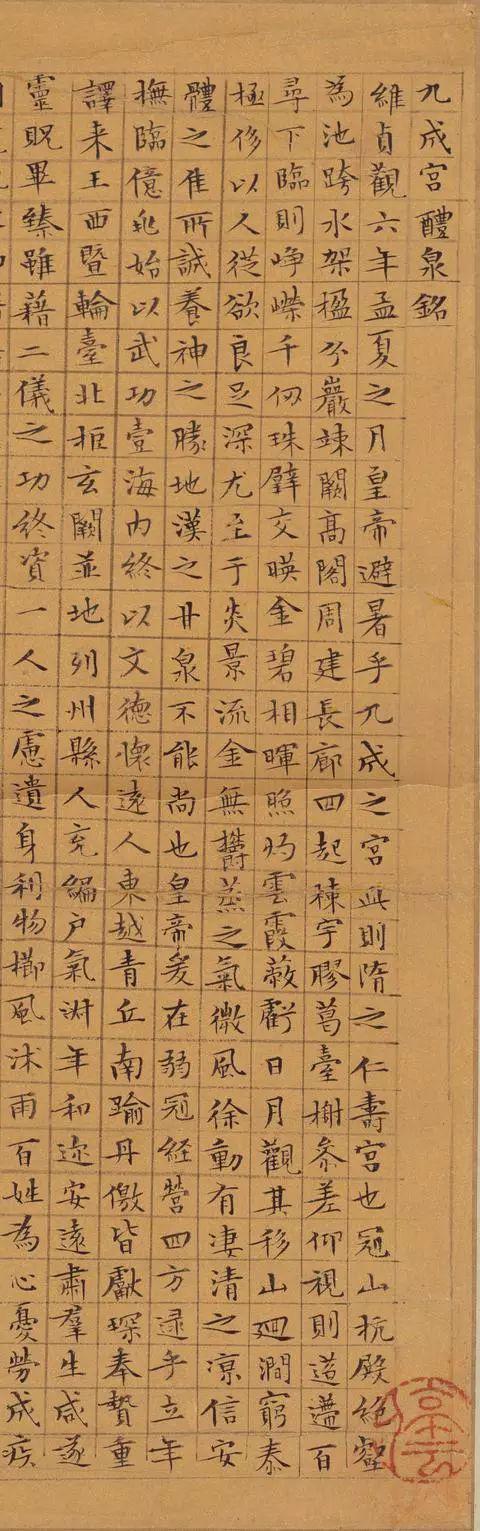 九成宮醴泉銘
維貞觀六年孟夏之月皇帝避暑乎九成之宮此則隋之仁壽宮也冠山抗殿絕壑
為池跨水架楹分巖竦闕高閣周建長廊四起棟宇膠葛臺榭參差仰視則迢遰百
尋下臨則崢嶸千仞珠璧交暎金碧相暉照灼雲霞蔽虧日月觀其移山迴澗窮泰
極侈以人從欲良足深尤至于炎景流金無鬱蒸之氣微風徐動有凄清之涼信安
體之佳所誠養神之勝地漢之甘泉不能尚也皇帝爰在弱冠經營四方逮乎立年
撫臨億兆始以武功壹海內終以文德懷遠人東越青丘南踰丹徼皆獻琛奉贄重
譯来王西暨輪臺北拒玄闕並地列州縣人充編戶氣淑年和迩安遠肅羣生咸遂
靈貺畢臻雖藉二儀之功終資一人之慮遺身利物櫛風沐雨百姓為心憂勞成疾